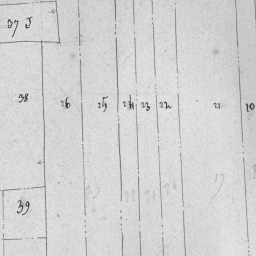 37 J
38 26 25 24 23 22 21 10
39